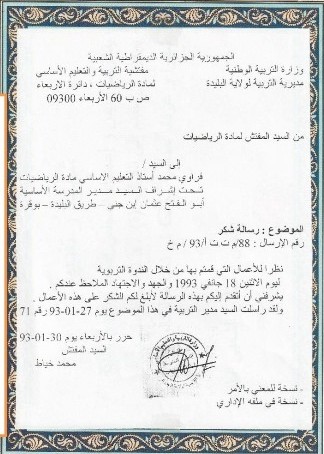 الجمهورية الجزائرية الديمقراطية الشعبية
وزارة التربية الوطنية
مفتشية التربية والتعليم الأساسي
مديرية التربية لولاية البليدة
لمادة الرياضيات ، دائرة الاربعاء
ص ب 60 الأربعاء 09300
من السيد المفتش لمادة الرياضيات
الى السيد /
فراوي محمد أستاذ التعليم الاساسي مادة الرياضيات
تحت إشراف السيد مدير المدرسة الأساسية
أبو الفتح عثمان إبن جني - طريق البليدة - بوقرة
الموضوع : رسالة شكر
رقم الإرسال : 88/م ت ت أ/93 / م خ
نظرا للأعمال التي قمتم بها من خلال الندوة التربوية
ليوم الاثنين 18 جانفي 1993 والجهد والاجتهاد الملاحظ عندكم .
يشرفني أن أتقدم إليكم بهذه الرسالة لأبلغ لكم الشكر على هذه الأعمال .
ولقد راسلت السيد مدير التربية في هذا الموضوع يوم 27-01-93 رقم 71
حرر بالأربعاء يوم 30-01-93
السيد المفتش
محمد خياط
- نسخة للمعني بالأمر
- نسخة في ملفه الإداري